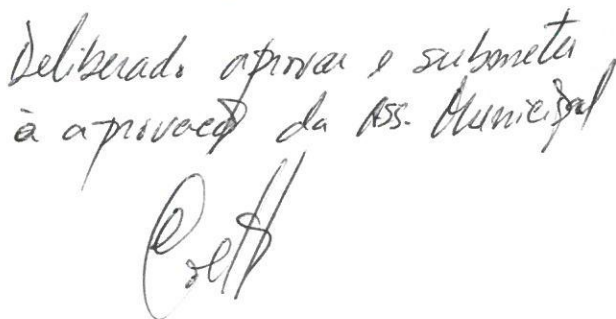 Deliberado aprovar e submeter
à aprovação da Ass. Municipal